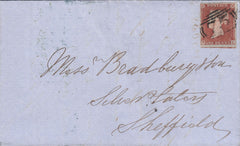 Messrs Bradbury & Son
Silver Platers
Sheffield